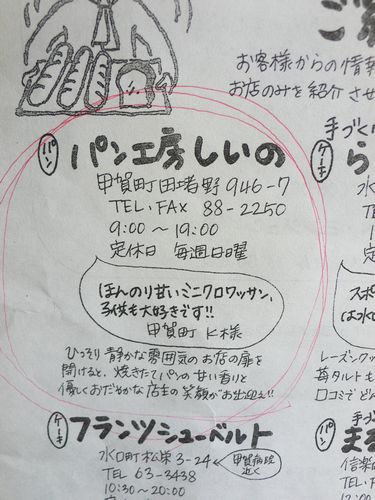 ご
お客様からの情
お店のみを紹介させ
パン
パン工房しいの
甲賀町田堵野946-7
TEL・FAX 88-2250
9:00～19:00
定休日 毎週日曜
ほんのり甘いミニクロワッサン、
子供も大好きです!!
甲賀町 K様
ひっそり静かな雰囲気のお店の扉を
開けると、焼きたてパンの甘い香りと
優しくおだやかな店主の笑顔がお出迎え!!
ケーキ
フランツシューベルト
水口町松栄3-24
甲賀病院
近く
TEL 63-3438
10:30～20:00
手づく
ケーキ
ら
水口
TEL
10
定
スポ
はっ水
レーズンクッ
苺タルトも
口コミでど
手づ
パン
ま
信楽
TEL